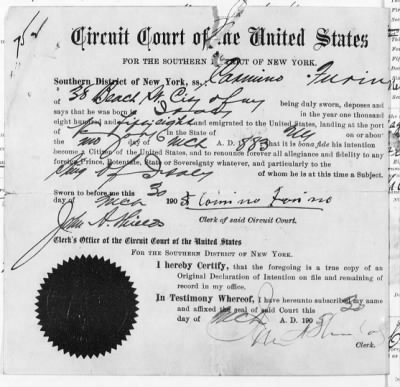 Circuit Court of the United States
FOR THE SOUTHERN DISTRICT OF NEW YORK.
Southern District of New York, ss. Camino Furino
of 38 Beach St City of NY being duly sworn, deposes and
says that he was born in Italy in the year one thousand
eight hundred and and emigrated to the United States, landing at the port
of in the State of NY on or about
the day of A. D. 883 that it is bona fide his intention
become a Citizen of the United States, and to renounce forever all allegiance and fidelity to any
foreign Prince, Potentate, State or Sovereignty whatever, and particularly to the
King of Italy of whom he is at this time a Subject.
Sworn to before me this 30
day of Mch 190 Camino Furino
John A. Shields Clerk of said Circuit Court.
Clerk's Office of the Circuit Court of the United States
FOR THE SOUTHERN DISTRICT OF NEW YORK.
I hereby Certify, that the foregoing is a true copy of an
Original Declaration of Intention on file and remaining of
record in my office.
In Testimony Whereof, I have hereunto subscribed my name
and affixed the seal of said Court this 30
day of Mch A. D. 190
Clerk.